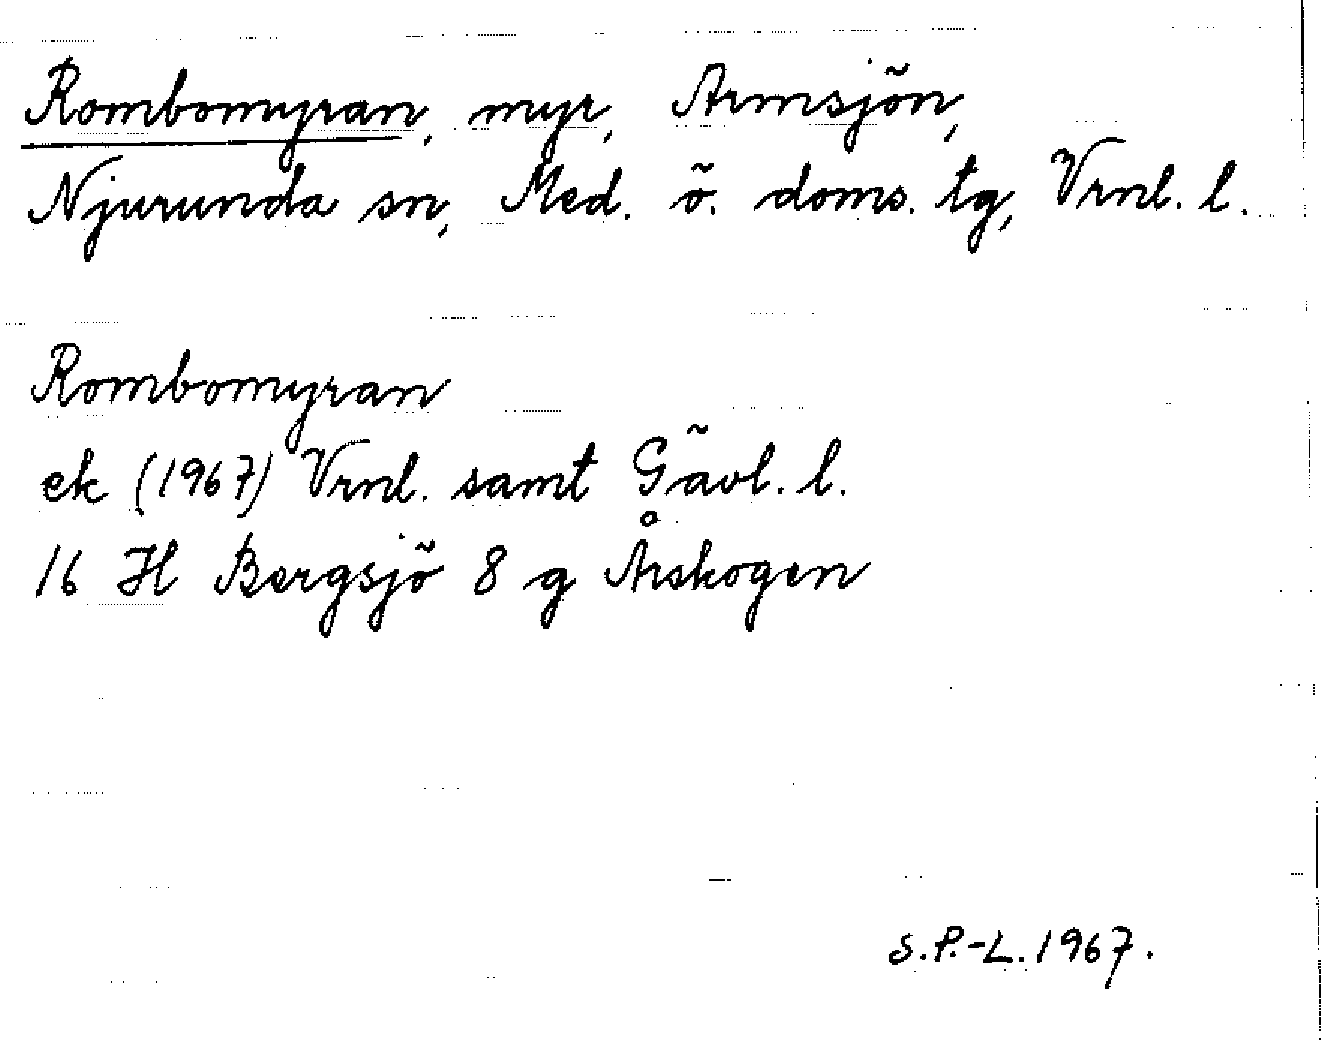 Rombomyran, myr, Armsjön,
Njurunda sn, Med. ö. doms. tg, Vrnl. l.
Rombomyran
ek (1967) Vrnl. samt Gävl. l.
16 H Bergsjö 8 g Årskogen
S.P.-L. 1967.